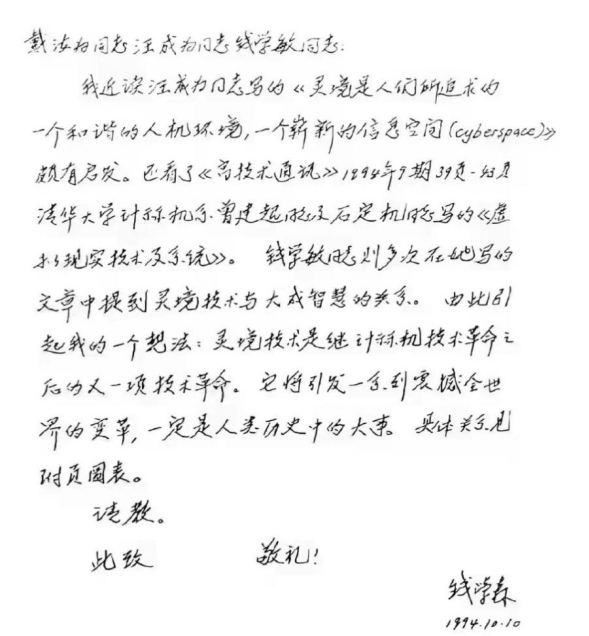 戴汝为同志汪成为同志钱学敏同志:
我近读汪成为同志写的《灵境是人们所追求的
一个和谐的人机环境,一个崭新的信息空间(cyberspace)》
颇有启发。还看了《高技术通讯》1994年9期39页-43页
清华大学计祘机系曾建超同志及石定机同志写的《虚
拟现实技术及系统》。 钱学敏同志则多次在她写的
文章中提到灵境技术与大成智慧的关系。 由此引
起我的一个想法:灵境技术是继计祘机技术革命之
后的又一项技术革命。它将引发一系列震撼全世
界的变革,一定是人类历史中的大事。 具体关系见
附页图表。
请教。
此致 敬礼!
钱学森
1994.10.10